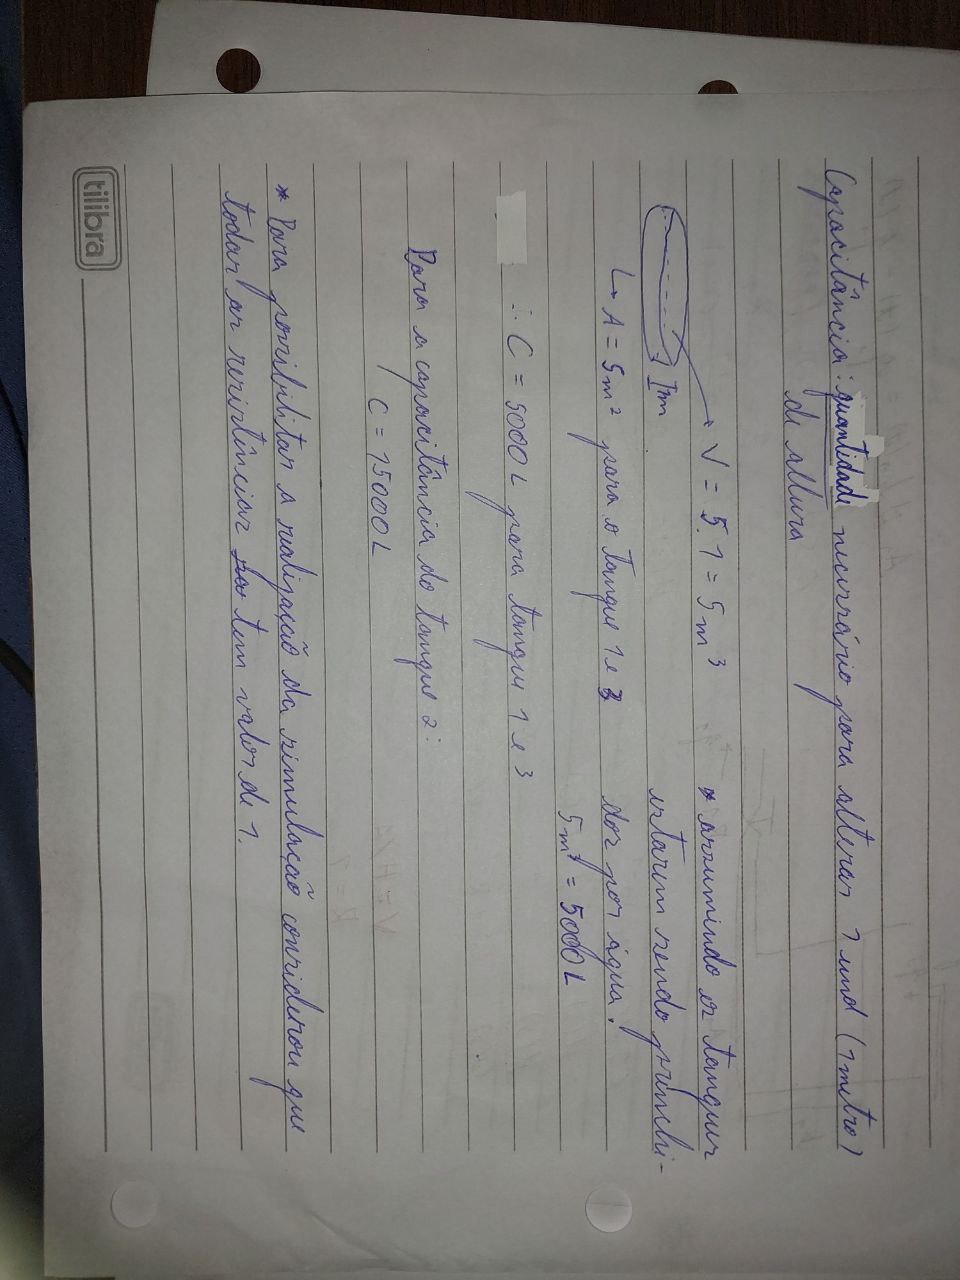 Capacitância: quantidade necessário para alterar 1 und (1 metro)
de altura
V = 5.1 = 5 m³
1m
↳ A = 5m² para o tanque 1 e 3
* assumindo os tanques
estarem sendo preenchi-
dos por água.
5m³ = 5000 L
∴ C = 5000 L para tanque 1 e 3
Para a capacitância do tanque 2:
C = 15000 L
* Para possibilitar a realização da simulação considerou que
todas as resistências tem valor de 1.
tilibra